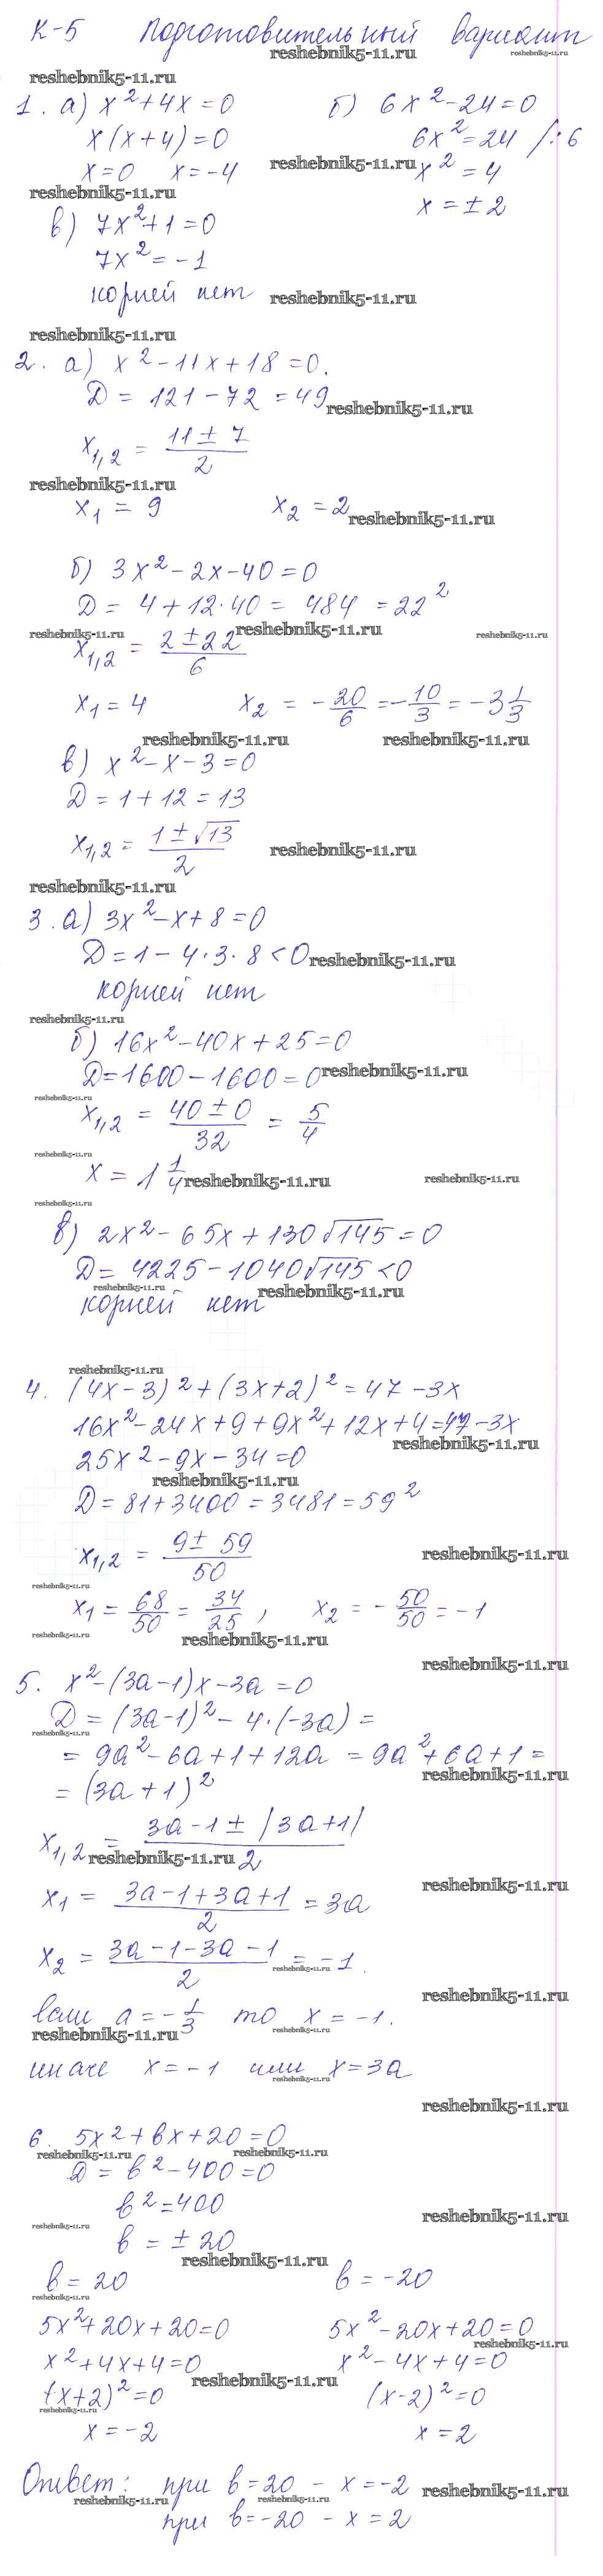 К-5 Подготовительный вариант
reshebnik5-11.ru reshebnik5-11.ru
reshebnik5-11.ru
1. а) x²+4x=0 б) 6x²-24=0
x(x+4)=0 6x²=24 /:6
x=0 x=-4 reshebnik5-11.ru x²=4
reshebnik5-11.ru x=±2
в) 7x²+1=0
7x²=-1
корней нет reshebnik5-11.ru
reshebnik5-11.ru
2. а) x²-11x+18=0.
Д = 121-72 = 49 reshebnik5-11.ru
x₁,₂ = (11±7)/2
reshebnik5-11.ru
x₁ = 9 x₂ = 2 reshebnik5-11.ru
б) 3x²-2x-40=0
Д = 4+12·40 = 484 = 22²
reshebnik5-11.ru reshebnik5-11.ru reshebnik5-11.ru
x₁,₂ = (2±22)/6
x₁=4 x₂ = -20/6 = -10/3 = -3 1/3
reshebnik5-11.ru reshebnik5-11.ru
в) x²-x-3=0
Д=1+12=13
x₁,₂ = (1±√13)/2 reshebnik5-11.ru
reshebnik5-11.ru
3. а) 3x²-x+8=0
Д=1-4·3·8<0 reshebnik5-11.ru
корней нет
reshebnik5-11.ru
б) 16x²-40x+25=0
Д=1600-1600=0 reshebnik5-11.ru
reshebnik5-11.ru
x₁,₂ = (40±0)/32 = 5/4
reshebnik5-11.ru
x = 1 1/4 reshebnik5-11.ru reshebnik5-11.ru
reshebnik5-11.ru
в) 2x²-65x+130√145=0
Д= 4225-1040√145<0
reshebnik5-11.ru reshebnik5-11.ru
корней нет
reshebnik5-11.ru
4. (4x-3)²+(3x+2)²=47-3x
16x²-24x+9+9x²+12x+4=47-3x
reshebnik5-11.ru
25x²-9x-34=0
reshebnik5-11.ru
Д=81+3400=3481=59²
x₁,₂ = (9±59)/50 reshebnik5-11.ru
reshebnik5-11.ru
x₁ = 68/50 = 34/25, x₂ = -50/50 = -1
reshebnik5-11.ru reshebnik5-11.ru
reshebnik5-11.ru
5. x²-(3a-1)x-3a=0
Д = (3a-1)²-4·(-3a) =
reshebnik5-11.ru
= 9a²-6a+1+12a = 9a²+6a+1 =
reshebnik5-11.ru
= (3a+1)²
x₁,₂ = (3a-1±|3a+1|)/2
reshebnik5-11.ru
x₁ = (3a-1+3a+1)/2 = 3a reshebnik5-11.ru
x₂ = (3a-1-3a-1)/2 = -1.
reshebnik5-11.ru
reshebnik5-11.ru
если a=-1/3 то x=-1.
reshebnik5-11.ru reshebnik5-11.ru
иначе x=-1 или x=3a
reshebnik5-11.ru
reshebnik5-11.ru
6. 5x²+вx+20=0
reshebnik5-11.ru reshebnik5-11.ru
Д = в²-400=0
в²=400
reshebnik5-11.ru reshebnik5-11.ru
в = ±20
reshebnik5-11.ru
в=20 в=-20
reshebnik5-11.ru
5x²+20x+20=0 5x²-20x+20=0
reshebnik5-11.ru
x²+4x+4=0 x²-4x+4=0
reshebnik5-11.ru
(x+2)²=0 (x-2)²=0
reshebnik5-11.ru
x=-2 x=2
Ответ: при в=20 - x=-2 reshebnik5-11.ru
reshebnik5-11.ru reshebnik5-11.ru
при в=-20 - x=2